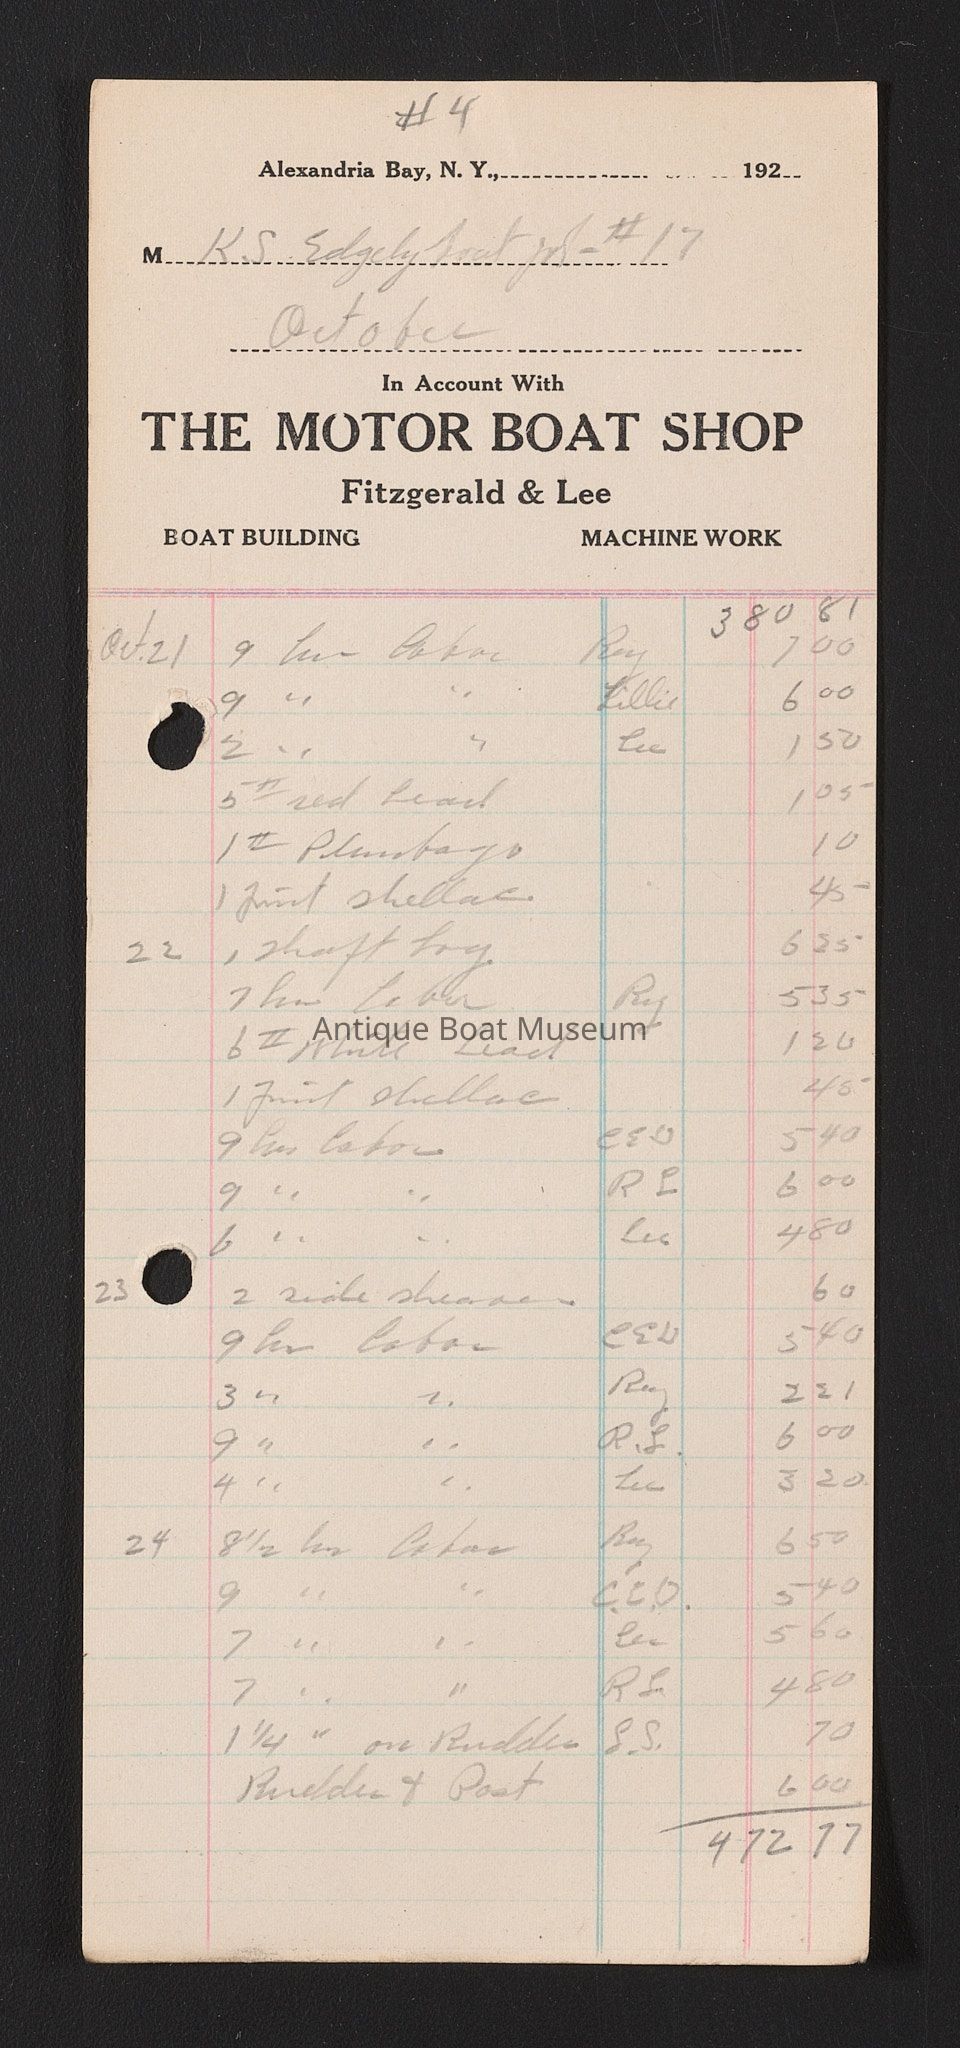 #4
Alexandria Bay, N. Y., 192
M K.S. Edgely boat job - #17
October
In Account With
THE MOTOR BOAT SHOP
Fitzgerald & Lee
BOAT BUILDING MACHINE WORK
380 81
Oct. 21 9 hrs labor Ray 7 00
9 " " Lillie 6 00
2 " " Lee 1 50
5# red lead 1 05
1# Plumbago 10
1 pint shellac 45
22 1 shaft log 6 25
7 hrs labor Ray 5 35
6# White Lead 1 20
1 pint shellac 45
9 hrs labor CED 5 40
9 " " R L 6 00
6 " " Lee 4 80
23 2 side sheaves 60
9 hrs labor CED 5 40
3 " " Ray 2 21
9 " " R.L. 6 00
4 " " Lee 3 20
24 8 1/2 hrs labor Ray 6 50
9 " " C.E.D. 5 40
7 " " Lee 5 60
7 " " RL 4 80
1 1/4 " on Rudder S.S. 70
Rudder & Post 6 00
472 77
Antique Boat Museum